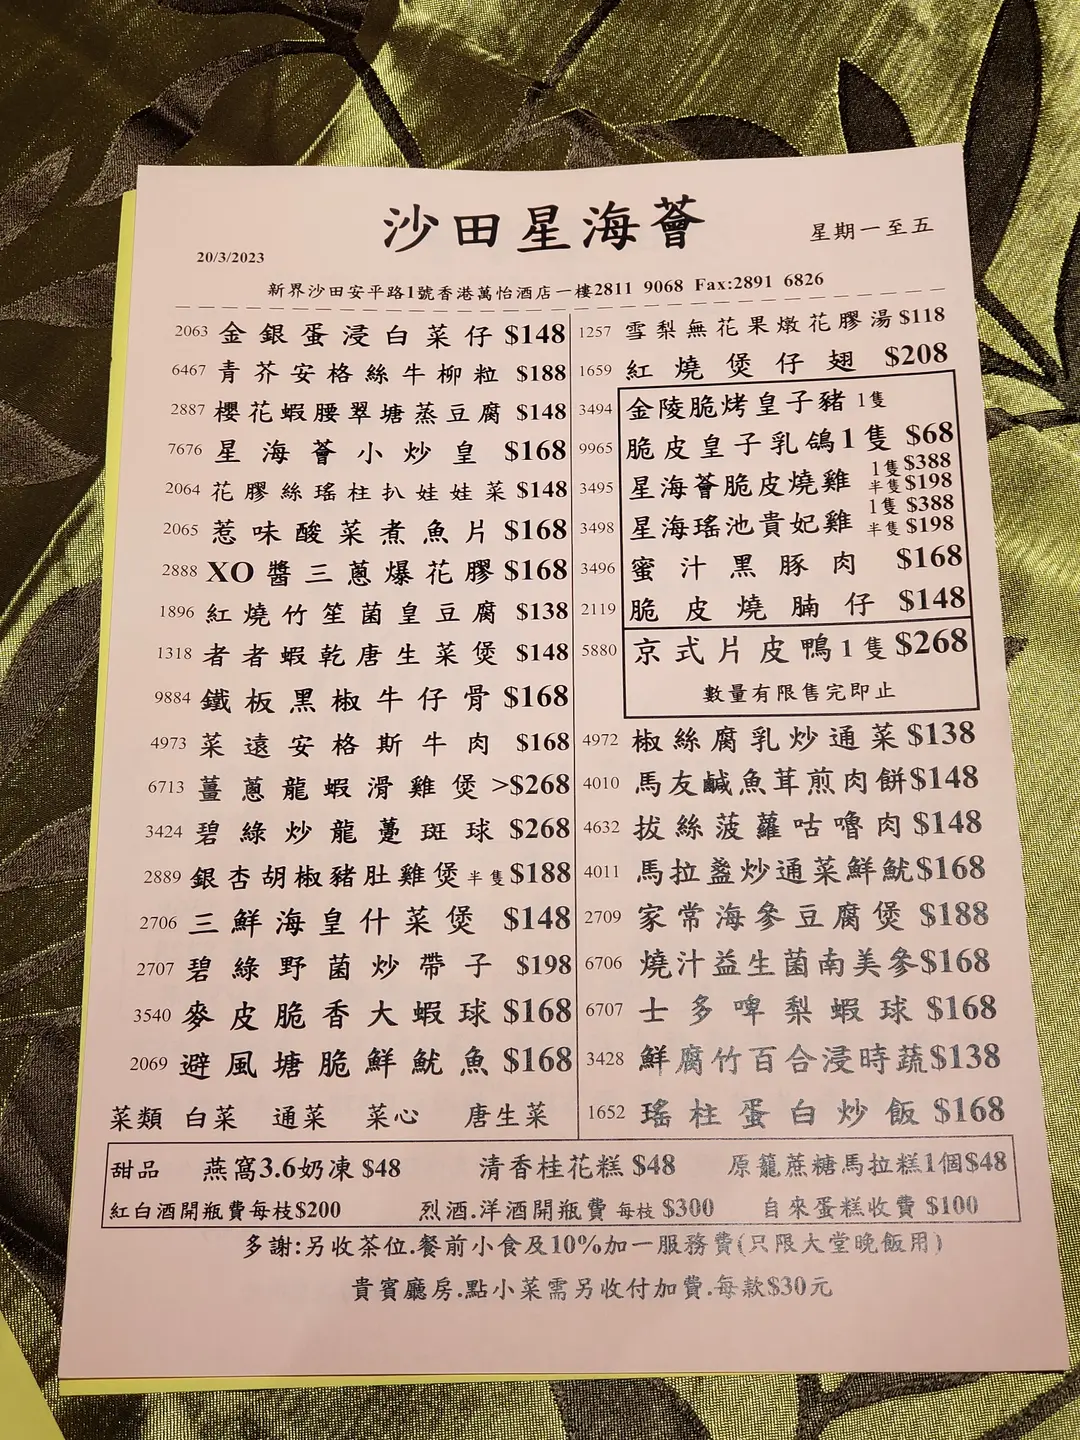 沙田星海薈
星期一至五
20/3/2023
新界沙田安平路1號香港萬怡酒店一樓2811 9068 Fax:2891 6826
2063 金銀蛋浸白菜仔 $148
6467 青芥安格絲牛柳粒 $188
2887 櫻花蝦腰翠塘蒸豆腐 $148
7676 星海薈小炒皇 $168
2064 花膠絲瑤柱扒娃娃菜 $148
2065 惹味酸菜煮魚片 $168
2888 XO醬三蔥爆花膠 $168
1896 紅燒竹笙菌皇豆腐 $138
1318 者者蝦乾唐生菜煲 $148
9884 鐵板黑椒牛仔骨 $168
4973 菜遠安格斯牛肉 $168
6713 薑蔥龍蝦滑雞煲 >$268
3424 碧綠炒龍躉斑球 $268
2889 銀杏胡椒豬肚雞煲 半隻 $188
2706 三鮮海皇什菜煲 $148
2707 碧綠野菌炒帶子 $198
3540 麥皮脆香大蝦球 $168
2069 避風塘脆鮮魷魚 $168
菜類 白菜 通菜 菜心 唐生菜
1257 雪梨無花果燉花膠湯 $118
1659 紅燒煲仔翅 $208
3494 金陵脆烤皇子豬 1隻
9965 脆皮皇子乳鴿1隻 $68
3495 星海薈脆皮燒雞 1隻 $388 半隻 $198
3498 星海瑤池貴妃雞 1隻 $388 半隻 $198
3496 蜜汁黑豚肉 $168
2119 脆皮燒腩仔 $148
5880 京式片皮鴨1隻 $268
數量有限售完即止
4972 椒絲腐乳炒通菜 $138
4010 馬友鹹魚茸煎肉餅 $148
4632 拔絲菠蘿咕嚕肉 $148
4011 馬拉盞炒通菜鮮魷 $168
2709 家常海參豆腐煲 $188
6706 燒汁益生菌南美參 $168
6707 士多啤梨蝦球 $168
3428 鮮腐竹百合浸時蔬 $138
1652 瑤柱蛋白炒飯 $168
甜品 燕窩3.6奶凍 $48 清香桂花糕 $48 原籠蔗糖馬拉糕1個$48
紅白酒開瓶費每枝$200 烈酒.洋酒開瓶費 每枝 $300 自來蛋糕收費 $100
多謝:另收茶位.餐前小食及10%加一服務費(只限大堂晚飯用)
貴賓廳房.點小菜需另收付加費.每款$30元